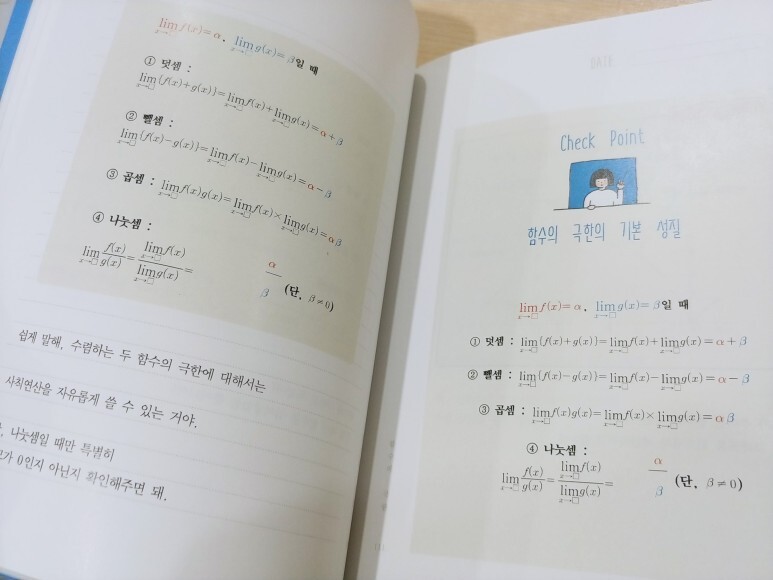 lim x→□ f(x)=α, lim x→□ g(x)=β일 때
① 덧셈 :
lim x→□ (f(x)+g(x))=lim x→□ f(x)+lim x→□ g(x)=α+β
② 뺄셈 :
lim x→□ (f(x)-g(x))=lim x→□ f(x)-lim x→□ g(x)=α-β
③ 곱셈 : lim x→□ f(x)g(x)=lim x→□ f(x)×lim x→□ g(x)=αβ
④ 나눗셈 :
lim x→□ f(x)/g(x)=lim x→□ f(x)/lim x→□ g(x)=α/β (단, β≠0)
쉽게 말해, 수렴하는 두 함수의 극한에 대해서는
사칙연산을 자유롭게 쓸 수 있는 거야.
나눗셈일 때만 특별히
0인지 아닌지 확인해주면 돼.
Check Point
함수의 극한의 기본 성질
lim x→□ f(x)=α, lim x→□ g(x)=β일 때
① 덧셈 : lim x→□ (f(x)+g(x))=lim x→□ f(x)+lim x→□ g(x)=α+β
② 뺄셈 : lim x→□ (f(x)-g(x))=lim x→□ f(x)-lim x→□ g(x)=α-β
③ 곱셈 : lim x→□ f(x)g(x)=lim x→□ f(x)×lim x→□ g(x)=αβ
④ 나눗셈 :
lim x→□ f(x)/g(x)=lim x→□ f(x)/lim x→□ g(x)=α/β (단, β≠0)